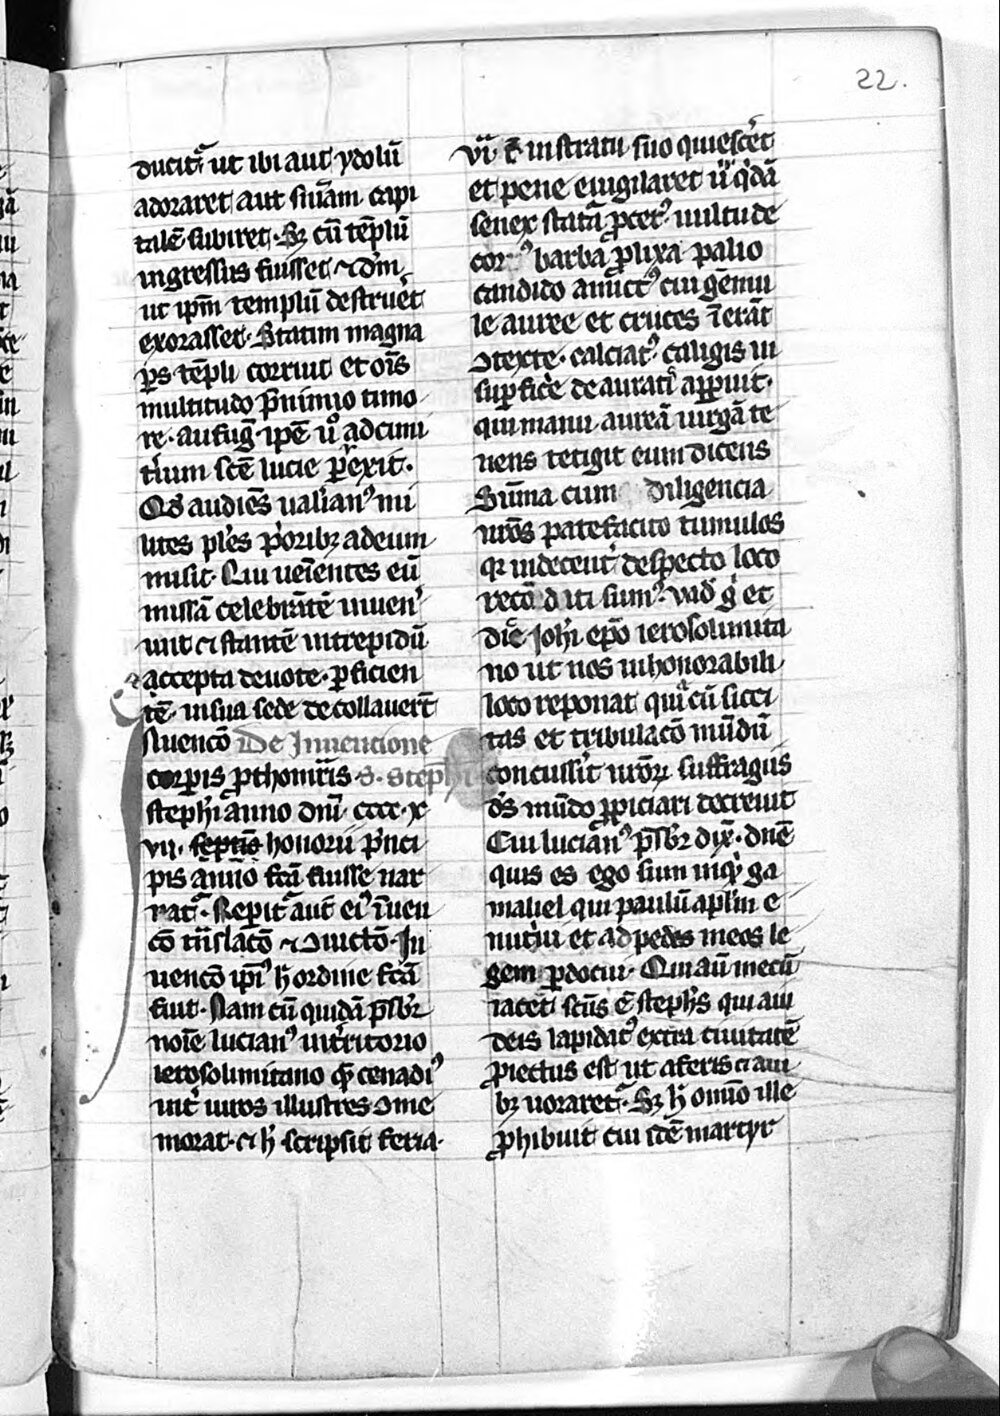 22.
ducitᷓ ut ibi aut ydolū
adoraret aut sniam capi
talē subiret. Sꝫ cū tēplū
ingressus fuisset ⁊ dm̄
ut ip̄m templū destruēt
exorasset. Statim magna
ꝑs tēpli corruit et ois̄
multitudo p̄ nimio timo
re. aufug̃ ip̄e uº ad cimi
t̓ium scē lucie ꝑrexit.
Qd̓ audiēs ualian̓ mi
lites pl̓es p̓oribꝫ ad eum
misit. Qui ueīentes eū
missā celebrātē inuen̓
unt et stantē intrepidū
accepta deuote. ꝑficien
tē. in sua sede decollauer̄t
Inuencō De Inuencione
corꝑis ꝓthomr̄is S. Stephi
stephi anno dn̄i. cccc. x
vii. septīo honorii p̓nci
pis anno fcā fuisse nar
ratᷓ. Reꝑitᷓ aut̄ ei̓ īuen
cō tn̄slacō ⁊ ↄiūctō. In
uencō ip̄i̓ h̓ ordine fcā
fuit. Nam cū quidā p̄sbr̄
noīe lucian̓ in t̓ritorio
ierosolimitano qͥ cenadi̓
int̓ uiros illustres ↄme
morat. et h̓ scripsit feria.
vi. c̄ in stratu suo quiesc̓et
et pene euigilaret ūͥ qͥdā
senex statᷓa ꝓcer̓ uultu de
cor̓ barba ꝓlixa palio
candido amict̓ cui gēmu
le auree et cruces īerāt
ↄtexte. calciat̓ caligis in
suꝑficie deauratͥ apꝑuit.
qui manu aureā uirgā te
nens tetigit eum dicens
Sūma cum diligencia
nr̄os patefacito tumulos
qꝛ indecent̓ despecto loco
recōditi sum̓. vad̓ gͦ et
dic̄ Joh̓i ep̄o ierosolimita
no ut nos in honorabili
loco reponat quiᷓ cū sicci
tas et tribulacō mūdū
concussͥit nr̄oꝝ suffragiis
ds̄ mūdo ꝓpiciari decreuit
Cui lucian̓ p̄sbr̄ dix̄. dn̄e
quis es ego sum inqͥ ga
maliel qui paulū apl̄m e
nut̓ui et ad pedes meos le
gem ꝑdocui. Qui aū mecū
iacet scūs ē steph̓s qui a iu
deis lapidat̓ extra ciuitatē
ꝓiectus est ut a feris et aui
bꝫ uoraretᷓ. Sꝫ h̓ omīo ille
ꝓhibuit cui fidē martyr